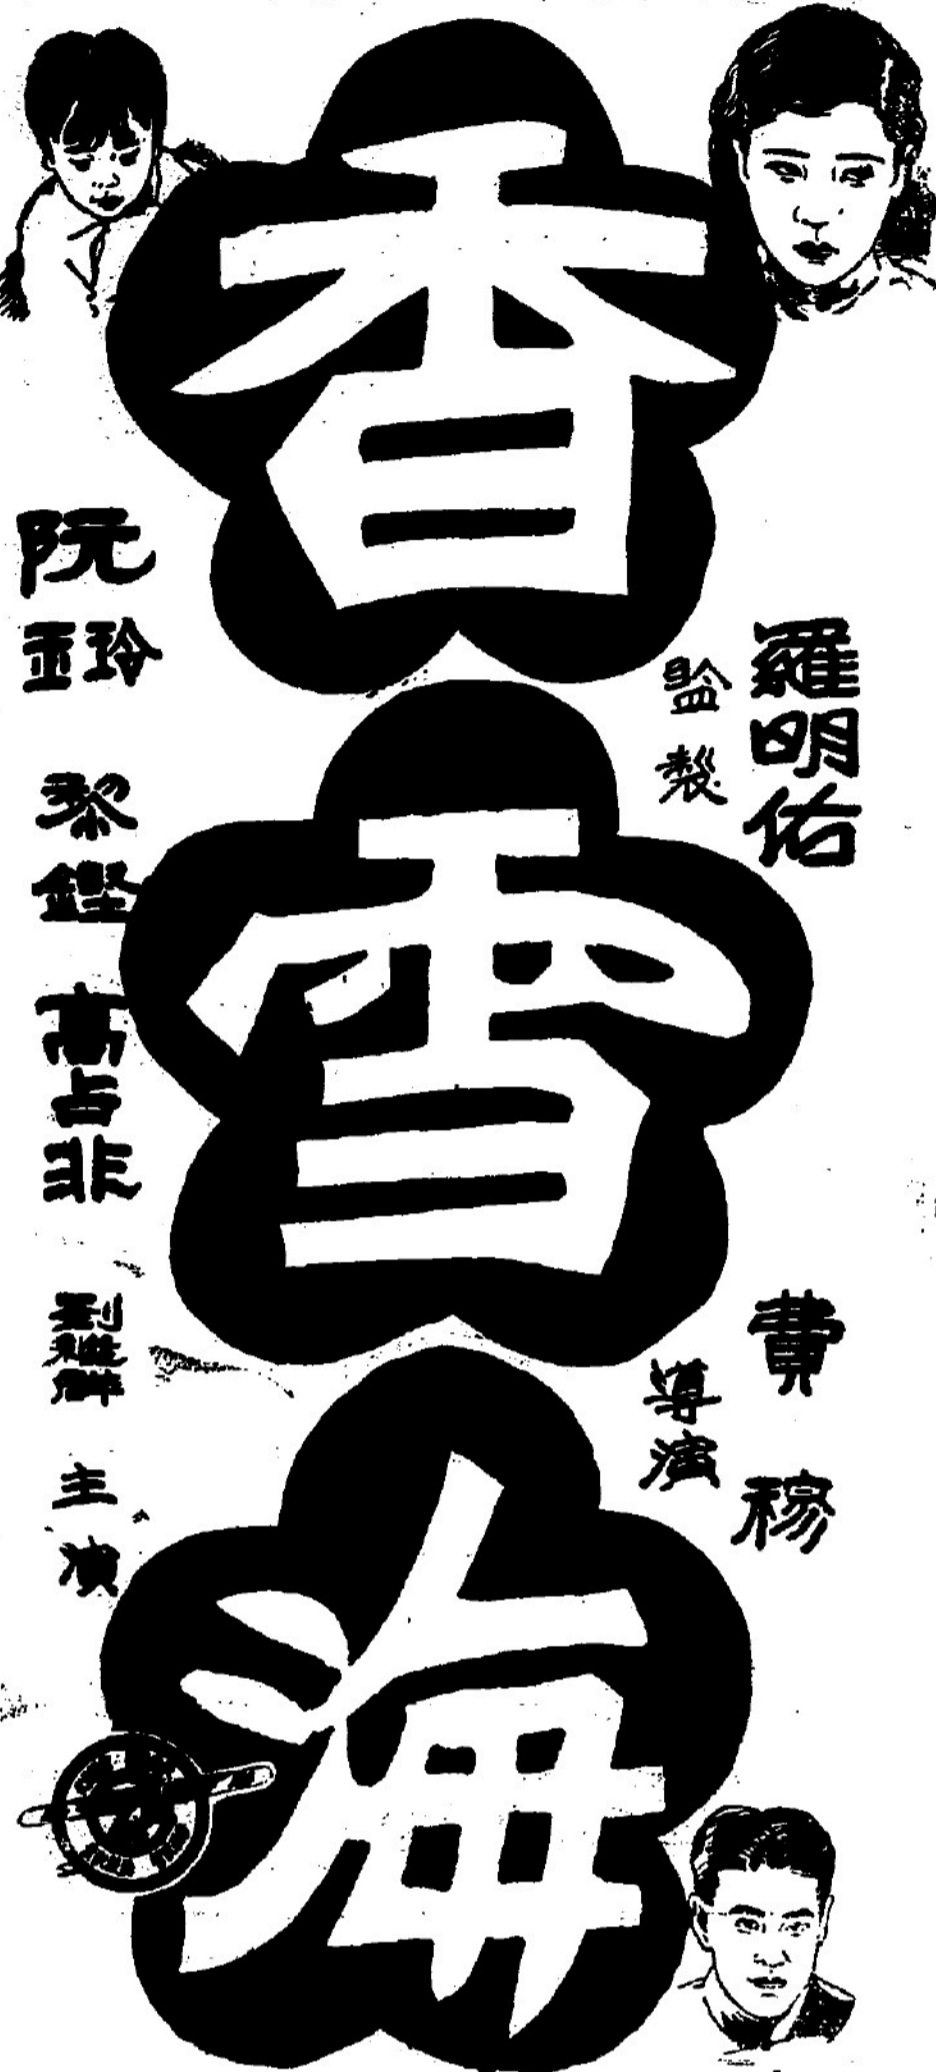 香雪海
羅明佑
監製
費穆
導演
阮玲玉
黎鏗
高占非
主演